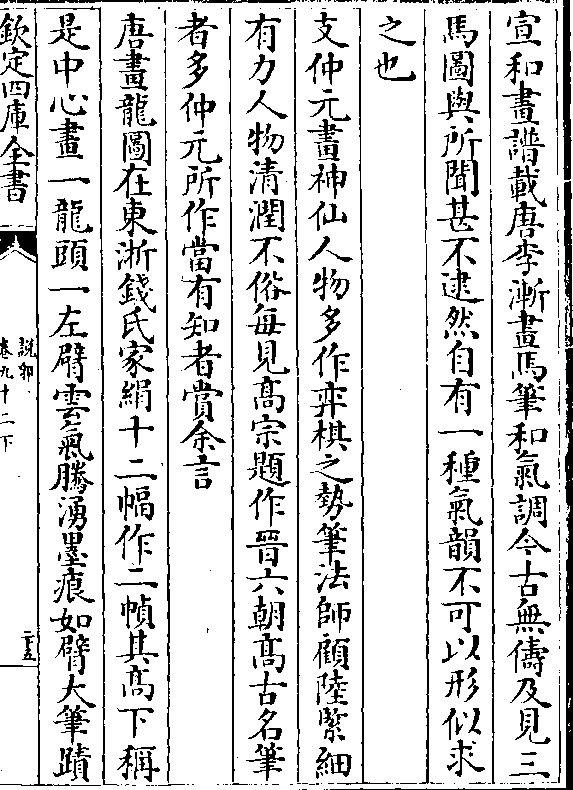 宣和畫譜載唐李漸畫馬筆和氣調今古無儔及見三
馬圖與所聞甚不逮然自有一種氣韻不可以形似求
之也
支仲元畫神仙人物多作弈棋之勢筆法師顧陸緊細
有力人物清潤不俗每見高宗題作晉六朝高古名筆
者多仲元所作當有知者賞余言
唐畫龍圖在東浙錢氏家絹十二幅作二幀其高下稱
是中心畫一龍頭一左臂雲氣騰湧墨痕如臂大筆蹟
欽定四庫全書
說郛
卷九十二下
二十五